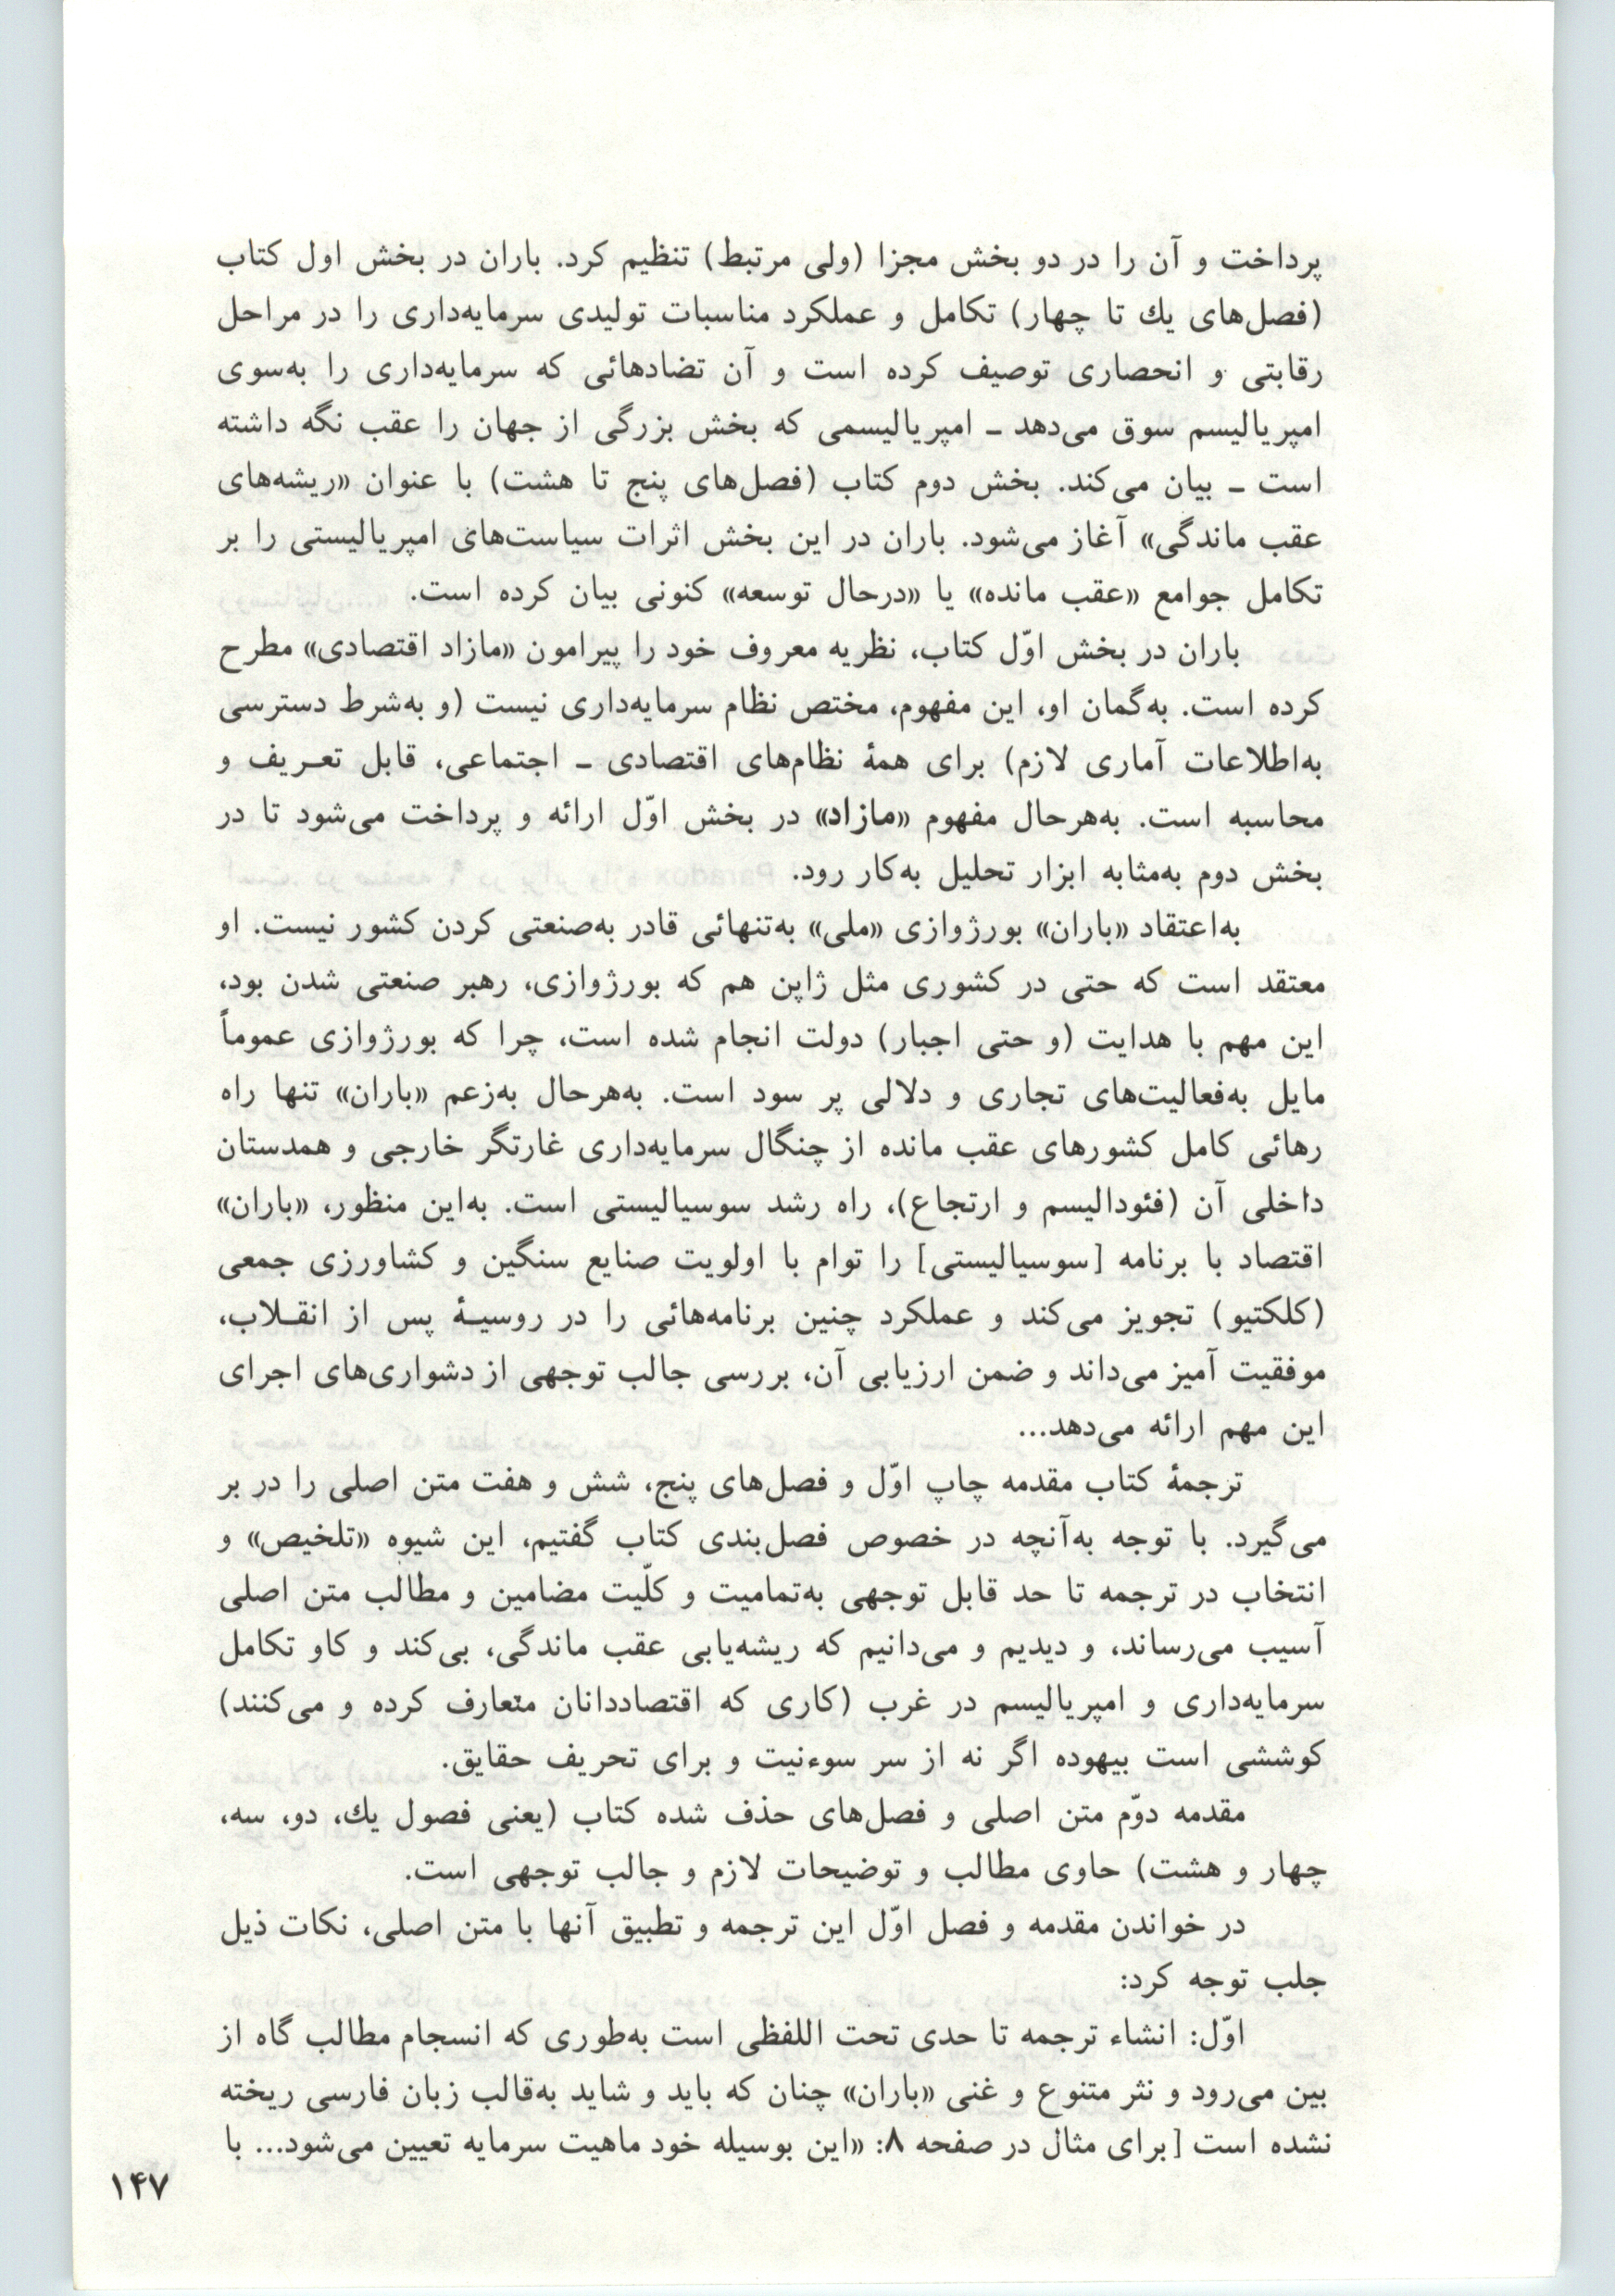 پرداخت و آن را در دو بخش مجزا (ولی مرتبط) تنظیم کرد. باران در بخش اول کتاب
(فصل‌های یك تا چهار) تکامل و عملکرد مناسبات تولیدی سرمایه‌داری را در مراحل
رقابتی و انحصاری توصیف کرده است و آن تضادهائی که سرمایه‌داری را به‌سوی
امپریالیسم سوق می‌دهد ـ امپریالیسمی که بخش بزرگی از جهان را عقب نگه داشته
است ـ بیان می‌کند. بخش دوم کتاب (فصل‌های پنج تا هشت) با عنوان «ریشه‌های
عقب ماندگی» آغاز می‌شود. باران در این بخش اثرات سیاست‌های امپریالیستی را بر
تکامل جوامع «عقب مانده» یا «درحال توسعه» کنونی بیان کرده است.
باران در بخش اوّل کتاب، نظریه معروف خود را پیرامون «مازاد اقتصادی» مطرح
کرده است. به‌گمان او، این مفهوم، مختص نظام سرمایه‌داری نیست (و به‌شرط دسترسی
به‌اطلاعات آماری لازم) برای همهٔ نظام‌های اقتصادی ـ اجتماعی، قابل تعـریف و
محاسبه است. به‌هرحال مفهوم «مازاد» در بخش اوّل ارائه و پرداخت می‌شود تا در
بخش دوم به‌مثابه ابزار تحلیل به‌کار رود.
به‌اعتقاد «باران» بورژوازی «ملی» به‌تنهائی قادر به‌صنعتی کردن کشور نیست. او
معتقد است که حتی در کشوری مثل ژاپن هم که بورژوازی، رهبر صنعتی شدن بود،
این مهم با هدایت (و حتی اجبار) دولت انجام شده است، چرا که بورژوازی عموماً
مایل به‌فعالیت‌های تجاری و دلالی پر سود است. به‌هرحال به‌زعم «باران» تنها راه
رهائی کامل کشورهای عقب مانده از چنگال سرمایه‌داری غارتگر خارجی و همدستان
داخلی آن (فئودالیسم و ارتجاع)، راه رشد سوسیالیستی است. به‌این منظور، «باران»
اقتصاد با برنامه [سوسیالیستی] را توام با اولویت صنایع سنگین و کشاورزی جمعی
(کلکتیو) تجویز می‌کند و عملکرد چنین برنامه‌هائی را در روسیـهٔ پس از انقـلاب،
موفقیت آمیز می‌داند و ضمن ارزیابی آن، بررسی جالب توجهی از دشواری‌های اجرای
این مهم ارائه می‌دهد...
ترجمهٔ کتاب مقدمه چاپ اوّل و فصل‌های پنج، شش و هفت متن اصلی را در بر
می‌گیرد. با توجه به‌آنچه در خصوص فصل‌بندی کتاب گفتیم، این شیوه «تلخیص» و
انتخاب در ترجمه تا حد قابل توجهی به‌تمامیت و کلّیت مضامین و مطالب متن اصلی
آسیب می‌رساند، و دیدیم و می‌دانیم که ریشه‌یابی عقب ماندگی، بی‌کند و کاو تکامل
سرمایه‌داری و امپریالیسم در غرب (کاری که اقتصاددانان متعارف کرده و می‌کنند)
کوششی است بیهوده اگر نه از سر سوءنیت و برای تحریف حقایق.
مقدمه دوّم متن اصلی و فصل‌های حذف شده کتاب (یعنی فصول یك، دو، سه،
چهار و هشت) حاوی مطالب و توضیحات لازم و جالب توجهی است.
در خواندن مقدمه و فصل اوّل این ترجمه و تطبیق آنها با متن اصلی، نکات ذیل
جلب توجه کرد:
اوّل: انشاء ترجمه تا حدی تحت اللفظی است به‌طوری که انسجام مطالب گاه از
بین می‌رود و نثر متنوع و غنی «باران» چنان که باید و شاید به‌قالب زبان فارسی ریخته
نشده است [برای مثال در صفحه ۸: «این بوسیله خود ماهیت سرمایه تعیین می‌شود... با
۱۴۷